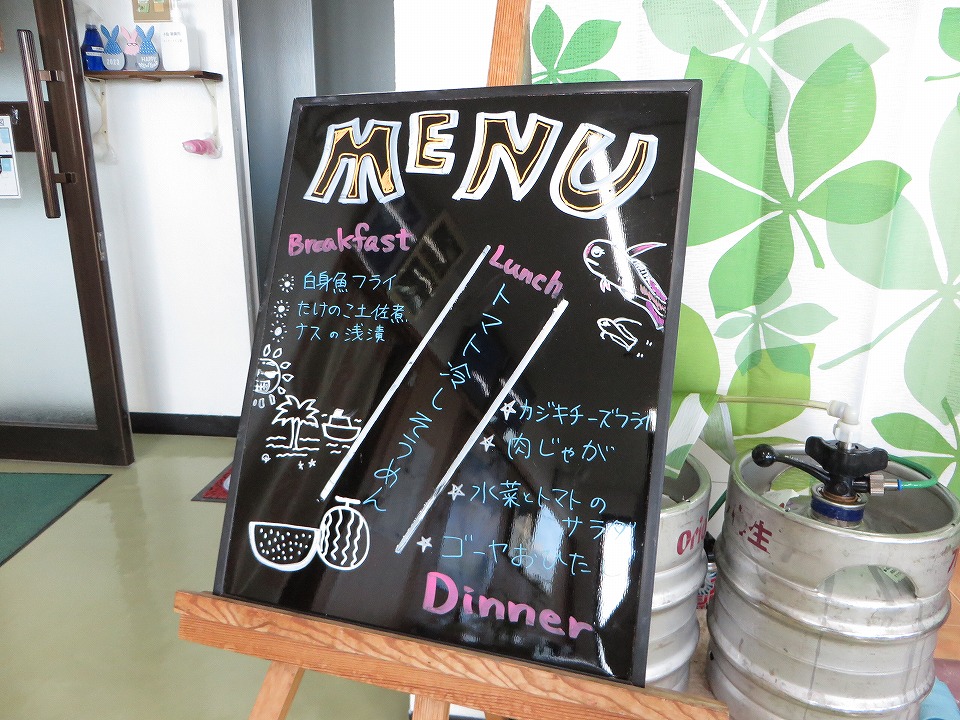 MENU
Breakfast
白身魚フライ
たけのこ土佐煮
ナスの浅漬
Lunch
トマト冷しそうめん
カジキチーズフライ
肉じゃが
水菜とトマトの
サラダ
ゴーヤおひたし
Dinner
2023
生